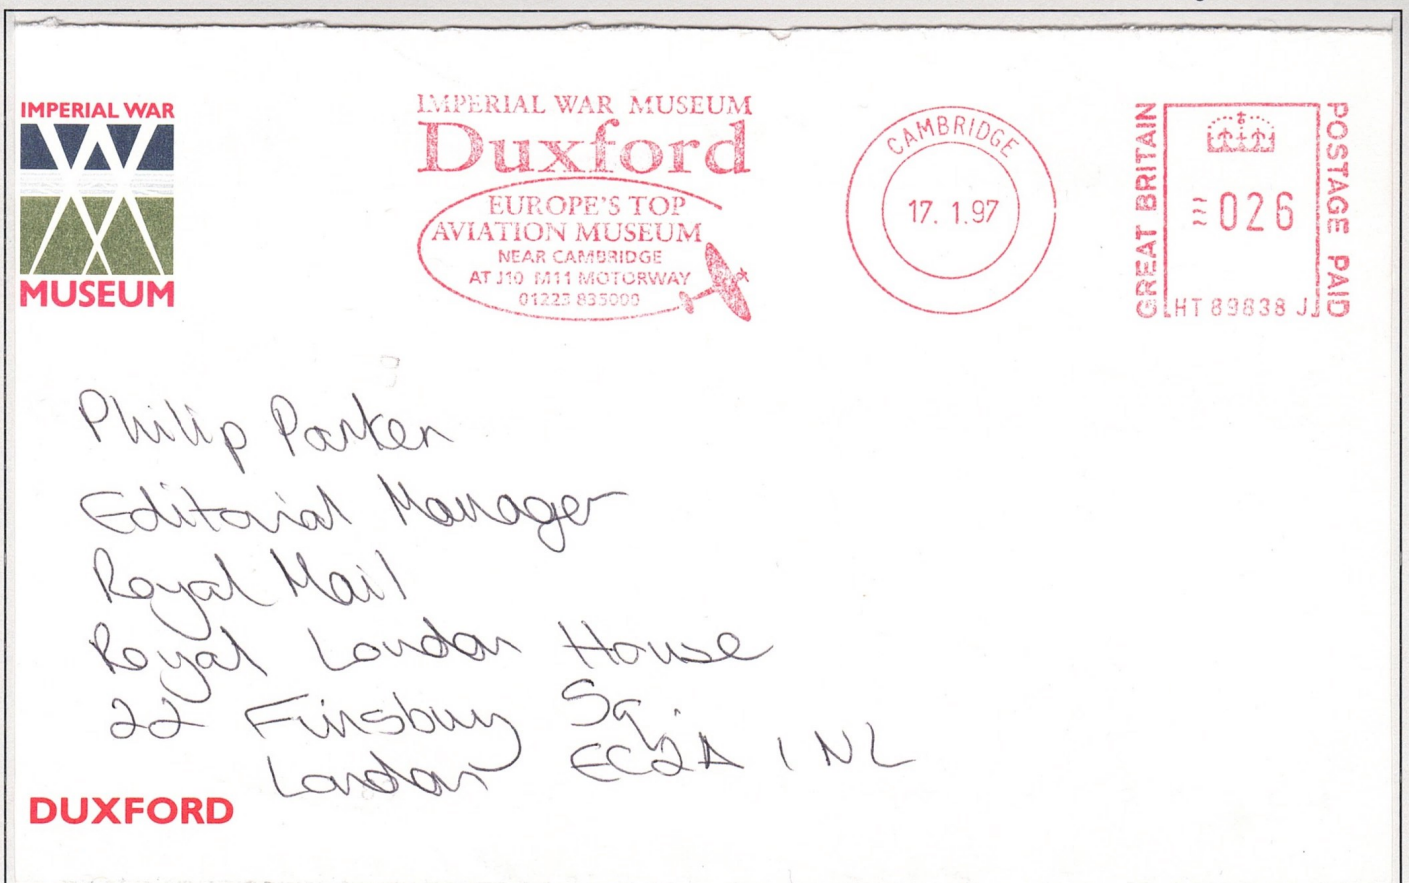 IMPERIAL WAR
MUSEUM
IMPERIAL WAR MUSEUM
Duxford
EUROPE'S TOP
AVIATION MUSEUM
NEAR CAMBRIDGE
AT J10 M11 MOTORWAY
01223 835000
CAMBRIDGE
17. 1.97
GREAT BRITAIN
026
HT 89838 J
POSTAGE PAID
Philip Parker
Editorial Manager
Royal Mail
Royal London House
22 Finsbury Sq.
London EC2A 1NL
DUXFORD